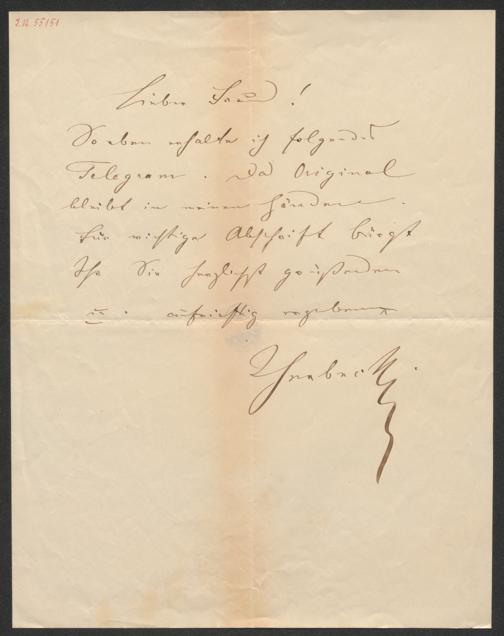 I.N. 55151
Lieber Freund!
Soeben erhalte ich folgendes
Telegram. Das Original
bleibt in meinen Händen.
Für richtige Abschrift bürgt
Ihr Sie herzlichst grüßender
u. aufrichtig ergebener